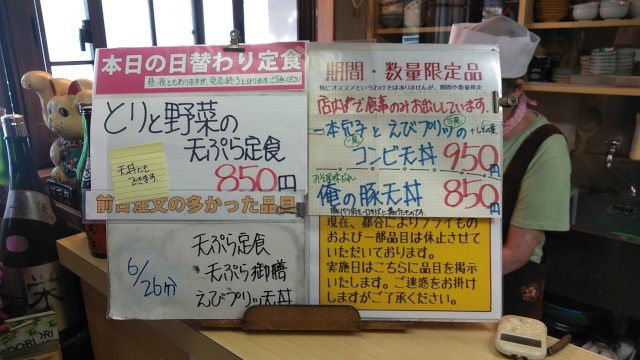 本日の日替わり定食
昼・夜ともありますが、完売終了とはります。ご了承ください
とりと野菜の
天ぷら定食
天丼にも
できます
850円
前日注文の多かった品目
6/26分
天ぷら定食
天ぷら御膳
えびプリッ天丼
期間・数量限定品
特にオススメというわけではありませんが、期間や数量限定
店内で食事のみお出ししています。
一本穴子とえびプリッの
コンビ天丼 950円
俺の豚天丼 850円
現在、都合によりフライもの
および一部品目は休止させて
いただいております。
実施日はこちらに品目を掲示
いたします。ご迷惑をお掛け
しますがご了承ください。
栄
MIDORI